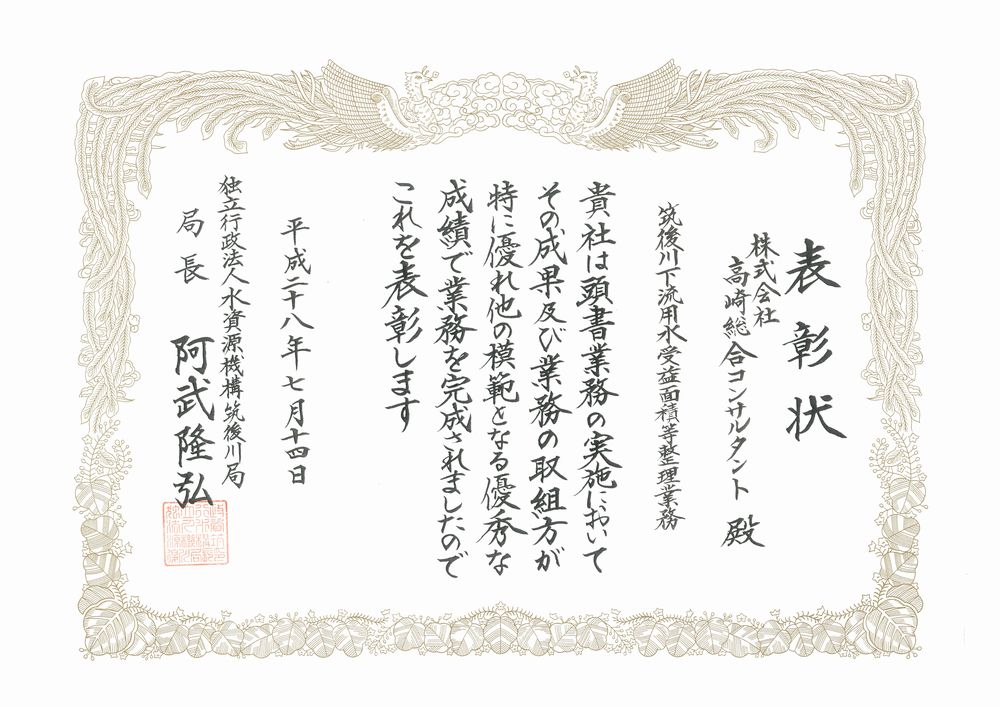 表彰状
株式会社
高崎総合コンサルタント 殿
筑後川下流用水受益面積等整理業務
貴社は頭書業務の実施において
その成果及び業務の取組方が
特に優れ他の模範となる優秀な
成績で業務を完成されましたので
これを表彰します
平成二十八年七月十四日
独立行政法人水資源機構筑後川局
局長 阿武隆弘